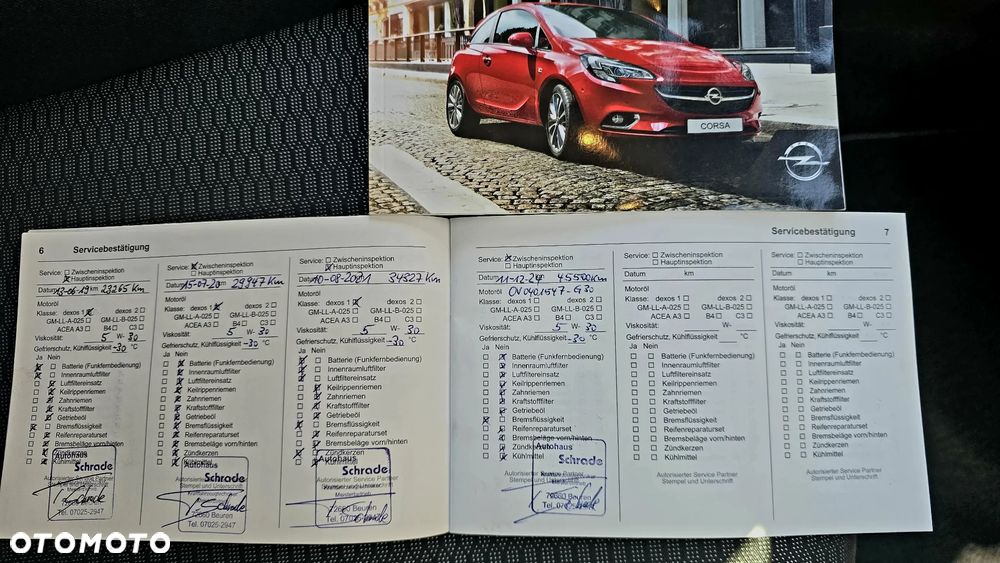 CORSA
6 Servicebestätigung
Service: ☐ Zwischeninspektion
☒ Hauptinspektion
Datum 13-06-19 km 23265 Km
Motoröl
Klasse: dexos 1 ☒ dexos 2 ☐
GM-LL-A-025 ☐ GM-LL-B-025 ☐
ACEA A3 ☐ B4 ☐ C3 ☐
Viskosität: 5 W- 30
Gefrierschutz, Kühlflüssigkeit -30 °C
Ja Nein
Batterie (Funkfernbedienung)
Innenraumluftfilter
Luftfiltereinsatz
Keilrippenriemen
Zahnriemen
Kraftstofffilter
Getriebeöl
Bremsflüssigkeit
Reifenreparaturset
Bremsbeläge vorn/hinten
Zündkerzen
Kühlmittel
Autohaus
Schrade
Tel. 07025-2947
Service: ☒ Zwischeninspektion
☐ Hauptinspektion
Datum 15-07-20 km 29947 Km
Motoröl
Klasse: dexos 1 ☒ dexos 2 ☐
GM-LL-A-025 ☐ GM-LL-B-025 ☐
ACEA A3 ☐ B4 ☐ C3 ☐
Viskosität: 5 W- 30
Gefrierschutz, Kühlflüssigkeit -30 °C
Ja Nein
Batterie (Funkfernbedienung)
Innenraumluftfilter
Luftfiltereinsatz
Keilrippenriemen
Zahnriemen
Kraftstofffilter
Getriebeöl
Bremsflüssigkeit
Reifenreparaturset
Bremsbeläge vorn/hinten
Zündkerzen
Kühlmittel
Autohaus
Schrade
72660 Beuren
Tel. 07025-2947
Service: ☐ Zwischeninspektion
☒ Hauptinspektion
Datum 10-08-2021 34327 Km
Motoröl
Klasse: dexos 1 ☒ dexos 2 ☐
GM-LL-A-025 ☐ GM-LL-B-025 ☐
ACEA A3 ☐ B4 ☐ C3 ☐
Viskosität: 5 W- 30
Gefrierschutz, Kühlflüssigkeit -30 °C
Ja Nein
Batterie (Funkfernbedienung)
Innenraumluftfilter
Luftfiltereinsatz
Keilrippenriemen
Zahnriemen
Kraftstofffilter
Getriebeöl
Bremsflüssigkeit
Reifenreparaturset
Bremsbeläge vorn/hinten
Zündkerzen
Kühlmittel
Autohaus
Schrade
72660 Beuren
Servicebestätigung 7
Service: ☒ Zwischeninspektion
☐ Hauptinspektion
Datum 11-12-24 45500 Km
Motoröl OV0401547-G30
Klasse: dexos 1 ☐ dexos 2 ☐
GM-LL-A-025 ☐ GM-LL-B-025 ☐
ACEA A3 ☐ B4 ☐ C3 ☐
Viskosität: 5 W- 30
Gefrierschutz, Kühlflüssigkeit -30 °C
Ja Nein
Batterie (Funkfernbedienung)
Innenraumluftfilter
Luftfiltereinsatz
Keilrippenriemen
Zahnriemen
Kraftstofffilter
Getriebeöl
Bremsflüssigkeit
Reifenreparaturset
Bremsbeläge vorn/hinten
Zündkerzen
Kühlmittel
Autohaus
Schrade
72660 Beuren
Service: ☐ Zwischeninspektion
☐ Hauptinspektion
Datum km
Motoröl
Klasse: dexos 1 ☐ dexos 2 ☐
GM-LL-A-025 ☐ GM-LL-B-025 ☐
ACEA A3 ☐ B4 ☐ C3 ☐
Viskosität: W-
Gefrierschutz, Kühlflüssigkeit °C
Ja Nein
☐ ☐ Batterie (Funkfernbedienung)
☐ ☐ Innenraumluftfilter
☐ ☐ Luftfiltereinsatz
☐ ☐ Keilrippenriemen
☐ ☐ Zahnriemen
☐ ☐ Kraftstofffilter
☐ ☐ Getriebeöl
☐ ☐ Bremsflüssigkeit
☐ ☐ Reifenreparaturset
☐ ☐ Bremsbeläge vorn/hinten
☐ ☐ Zündkerzen
☐ ☐ Kühlmittel
Autorisierter Service Partner
Stempel und Unterschrift
Service: ☐ Zwischeninspektion
☐ Hauptinspektion
Datum km
Motoröl
Klasse: dexos 1 ☐ dexos 2 ☐
GM-LL-A-025 ☐ GM-LL-B-025 ☐
ACEA A3 ☐ B4 ☐ C3 ☐
Viskosität: W-
Gefrierschutz, Kühlflüssigkeit °C
Ja Nein
☐ ☐ Batterie (Funkfernbedienung)
☐ ☐ Innenraumluftfilter
☐ ☐ Luftfiltereinsatz
☐ ☐ Keilrippenriemen
☐ ☐ Zahnriemen
☐ ☐ Kraftstofffilter
☐ ☐ Getriebeöl
☐ ☐ Bremsflüssigkeit
☐ ☐ Reifenreparaturset
☐ ☐ Bremsbeläge vorn/hinten
☐ ☐ Zündkerzen
☐ ☐ Kühlmittel
Autorisierter Service Partner
Stempel und Unterschrift
OTOMOTO